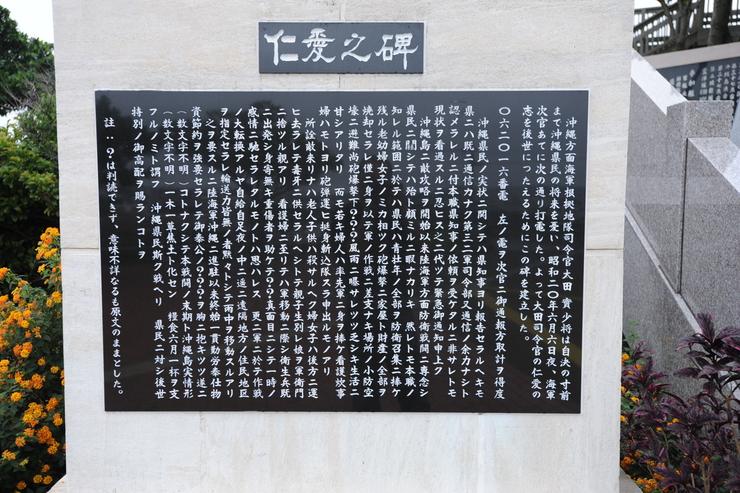 仁愛之碑
沖縄方面海軍根拠地隊司令官大田實少将は自決の寸前
まで沖縄県民の将来を憂い、昭和二〇年六月六日夜、海軍
次官あてに次の通り打電した。よって大田司令官の仁愛の
志を後世につたえるためにこの碑を建立した。
〇六二〇一六番電 左ノ電ヲ次官ニ御通報方取計ヲ得度
沖縄県民ノ実状ニ関シテハ県知事ヨリ報告セラルベキモ
県ニハ既ニ通信力ナク第三二軍司令部又通信ノ余力ナシト
認メラルルニ付本職県知事ノ依頼ヲ受ケタルニ非ザレトモ
現状ヲ看過スルニ忍ヒス之ニ代ツテ緊急御通知申上ク
沖縄島ニ敵攻略ヲ開始以来陸海軍方面防衛戦闘ニ専念シ
県民ニ関シテハ殆ト顧ミルニ暇ナカリキ 然レトモ本職ノ
知レル範囲ニ於テハ県民ハ青壮年ノ全部ヲ防衛召集ニ捧ケ
残ル老幼婦女子ノミカ相次ク砲爆撃ニ家屋ト財産ノ全部ヲ
焼却セラレ僅ニ身ヲ以テ軍ノ作戦ニ差支ナキ場所ノ小防空
壕ニ避難尚砲爆撃下？？？風雨ニ曝サレツツ乏シキ生活ニ
甘シアリタリ 而モ若キ婦人ハ率先軍ニ身ヲ捧ケ看護炊事
婦ハモトヨリ砲弾運ヒ挺身斬込隊スラ申出ルモノアリ
所詮敵来リナハ老人子供ハ殺サルヘク婦女子ハ後方ニ運
ヒ去ラレテ毒牙ニ供セラルヘシトテ親子生別レ娘ヲ軍衛門
ニ捨ツル親アリ 看護婦ニ至リテハ軍移動ニ際シ衛生兵既
ニ出発シ身寄無キ重傷者ヲ助ケテ？？真面目ニシテ一時ノ
感情ニ馳セラレタルモノトハ思ハレス 更ニ軍ニ於テ作戦
ノ大転換アルヤ自給自足夜ノ中ニ遥ニ遠隔地方ノ住民地区
ヲ指定セラレ輸送力皆無ノ者黙々トシテ雨中ヲ移動スルアリ
之ヲ要スルニ陸海軍沖縄ニ進駐以来終始一貫勤労奉仕物
資節約ヲ強要セラレテ御奉公ノ？？？ヲ胸ニ抱キツツ遂ニ
（数文字不明）コトナクシテ本戦闘ノ末期ト沖縄島実情形
（数文字不明）一木一草焦土ト化セン 糧食六月一杯ヲ支
フルノミト謂フ 沖縄県民斯ク戦ヘリ 県民ニ対シ後世
特別ノ御高配ヲ賜ランコトヲ
註：？は判読できず、意味不詳なるも原文のままとした。